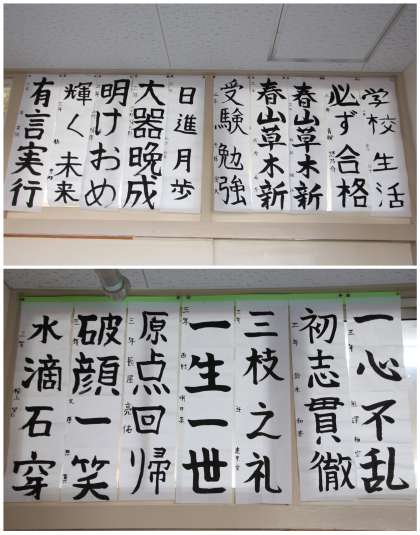 学校生活
必ず合格
春山草木新
春山草木新
受験勉強
日進月歩
大器晩成
明けおめ
輝く未来
有言実行
一心不乱
初志貫徹
三枝之礼
一生一世
原点回帰
破顔一笑
水滴石穿